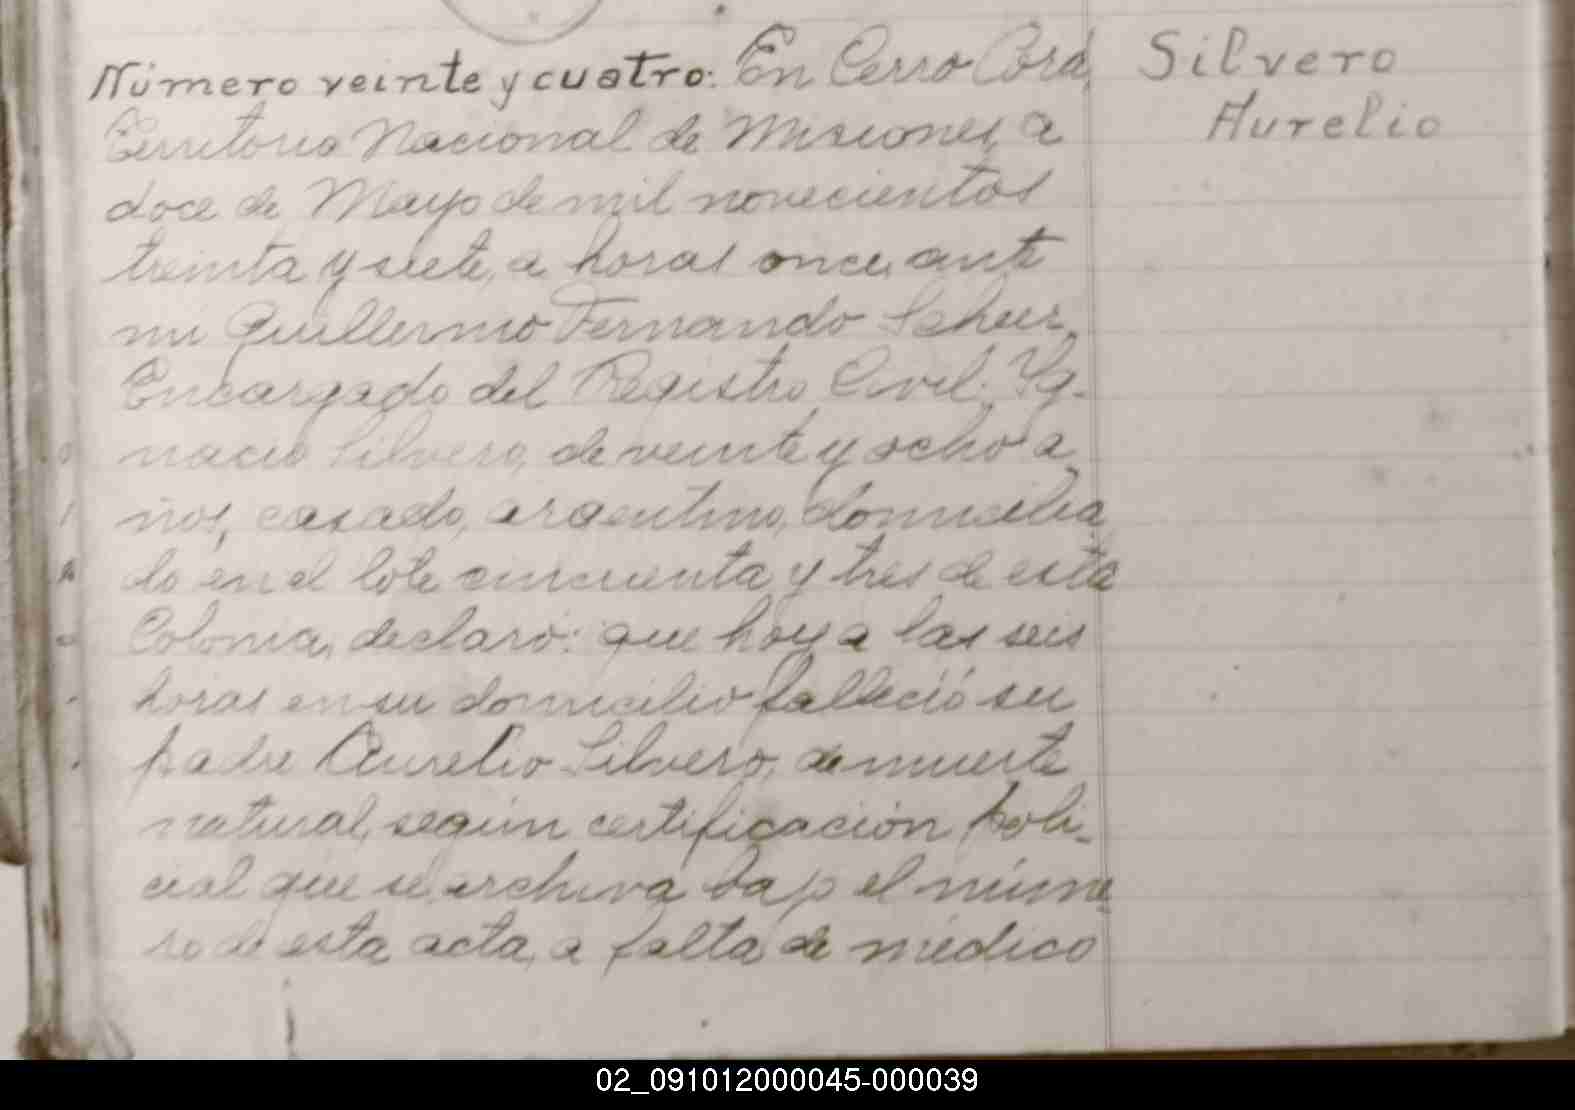 Número veinte y cuatro: En Cerro Corá,
Territorio Nacional de Misiones, a
doce de Mayo de mil novecientos
treinta y siete, a horas once, ante
mi Guillermo Fernando Scheer,
Encargado del Registro Civil: Yg-
nacio Silvero, de veinte y ocho a
ños, casado, argentino, domicilia
do en el lote cincuenta y tres de esta
Colonia, declaró: que hoy a las seis
horas en su domicilio falleció su
padre Aurelio Silvero, de muerte
natural, según certificación poli-
cial que se archiva bajo el núme
ro de esta acta, a falta de médico
Silvero
Aurelio
02_091012000045-000039